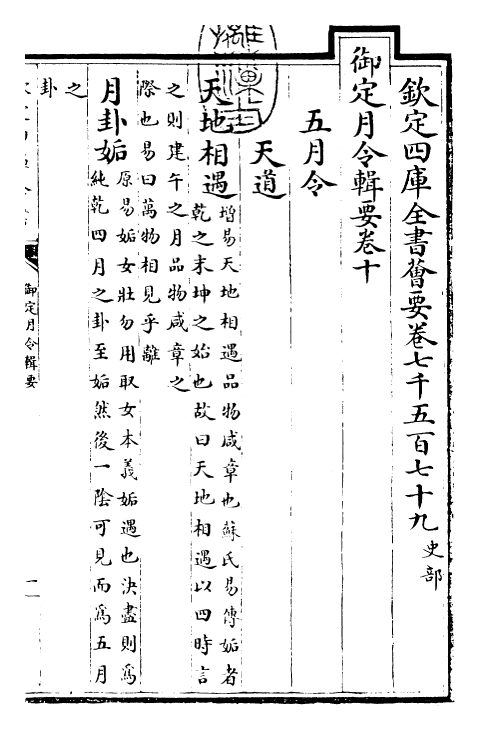 欽定四庫全書薈要卷七千五百七十九 史部
御定月令輯要卷十
五月令
天道
天地相遇 增易天地相遇品物咸章也蘇氏易傳姤者
乾之末坤之始也故曰天地相遇以四時言
之則建午之月品物咸章之
際也易曰萬物相見乎離
月卦姤 原易姤女壯勿用取女本義姤遇也決盡則為
純乾四月之卦至姤然後一陰可見而為五月
之
卦
御定月令輯要
一